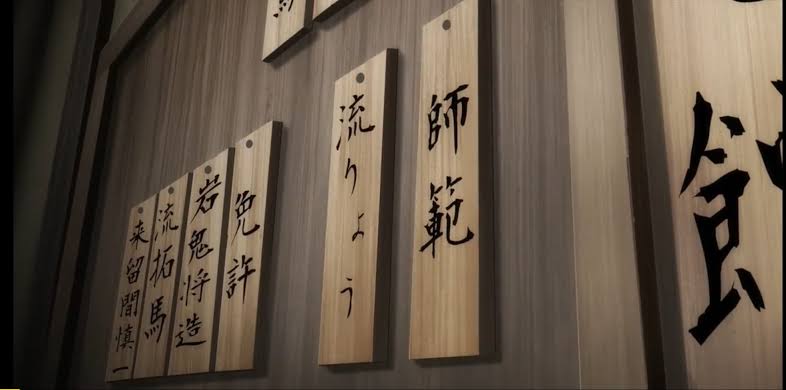 師範
流りょう
免許
岩鬼将造
流拓馬
来留間慎一